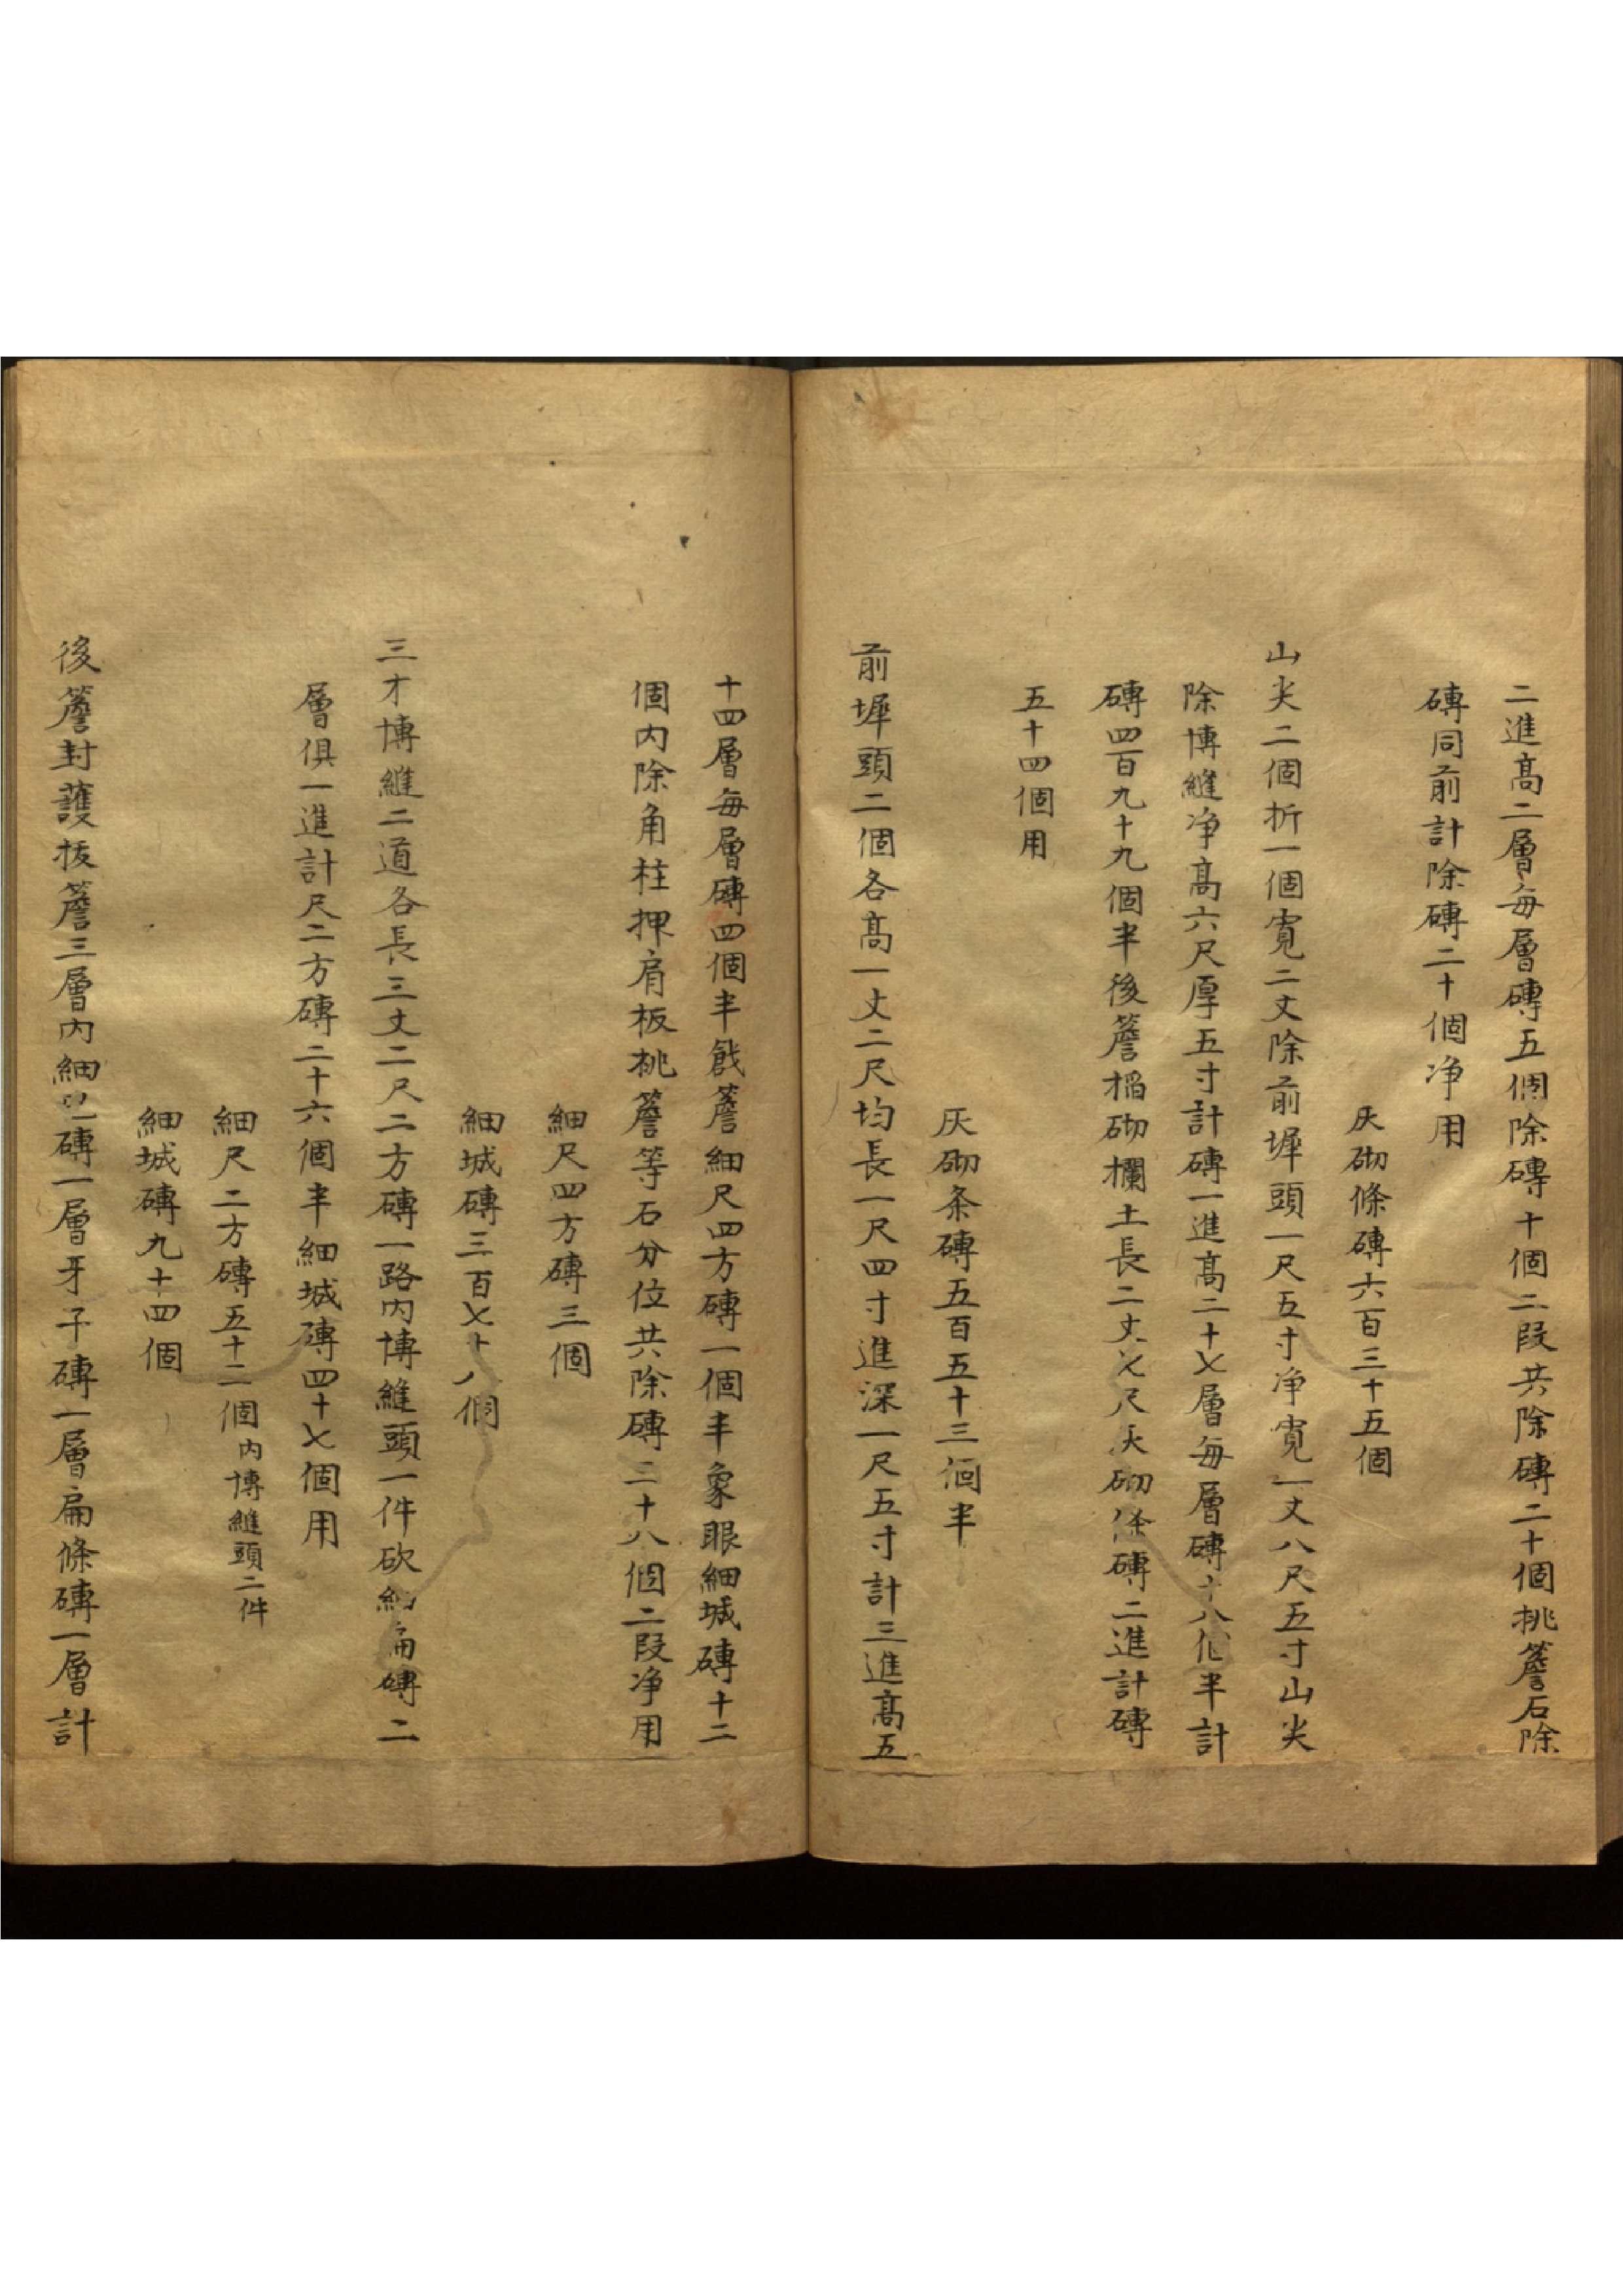 二進高二層每層磚五個除磚十個二段共除磚二十個挑簷石除
磚同前計除磚二十個净用
灰砌條磚六百三十五個
山尖二個折一個寬二丈除前墀頭一尺五寸净寬一丈八尺五寸山尖
除博縫净高六尺厚五寸計磚一進高二十七層每層磚十八個半計
磚四百九十九個半後簷搯砌攔土長二丈七尺灰砌條磚二進計磚
五十四個用
灰砌条磚五百五十三個半
前墀頭二個各高一丈二尺均長一尺四寸進深一尺五寸計三進高五
十四層每層磚四個半戧簷細尺四方磚一個半象眼細城磚十二
個内除角柱押肩板挑簷等石分位共除磚三十八個二段净用
細尺四方磚三個
細城磚三百七十八個
三才博縫二道各長三丈二尺二方磚一路内博縫頭一件砍細扁磚二
層俱一進計尺二方磚二十六個半細城磚四十七個用
細尺二方磚五十二個内博縫頭二件
細城磚九十四個
後簷封護拔簷三層内細磚一層牙子磚一層扁條磚一層計